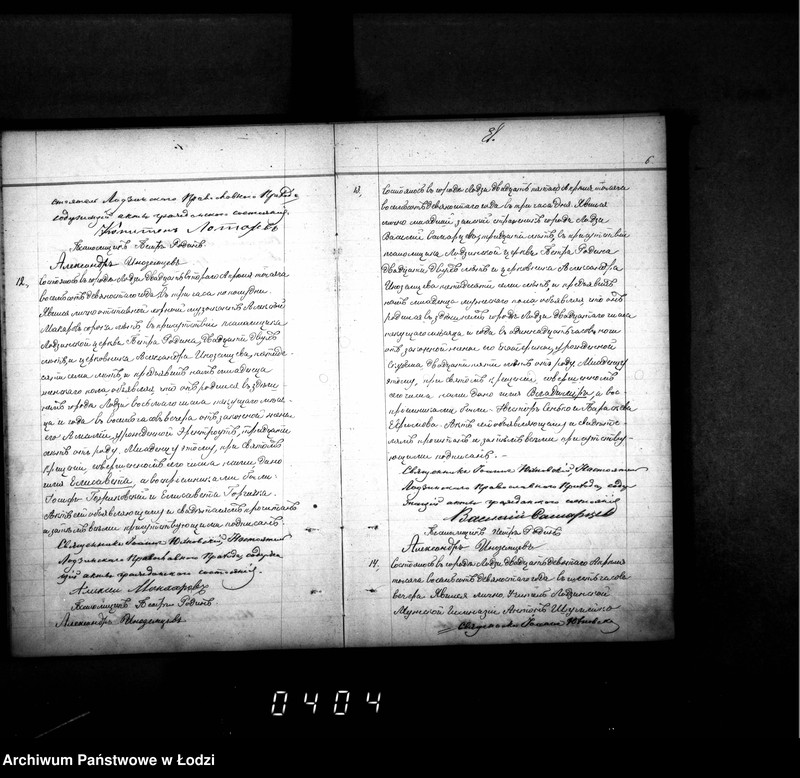 стоятель Лодзинскаго Православнаго Прихода
содержащій акты гражданскаго состоянія.
Лотаревъ
Псаломщикъ Петръ Родинъ
Александръ Иноземцевъ
12,
Состоялось въ городѣ Лодзи двадцать втораго Апрѣля тысяча
восемьсотъ девяностаго года въ три часа по полудни.
Явился лично отставной хорной музыкантъ Алексѣй
Макаровъ сорока лѣтъ, въ присутствіи псаломщика
Лодзинской церкви Петра Родина, двадцати двухъ
лѣтъ и церковника Александра Иноземцева, пятиде-
сяти семи лѣтъ, и предъявилъ намъ младенца
женскаго пола объявляя, что онъ родился въ здѣш-
немъ городѣ Лодзи восьмаго сего текущаго мѣся-
ца и года въ восемь часовъ вечера отъ законной жены
его Амаліи, урожденной Эрентроутъ, тридцати
лѣтъ отъ роду. Младенцу этому, при святомъ
крещеніи, совершенномъ его сего числа дано
имя Елисавета, а воспріемниками были
Іосифъ и Елисавета
Актъ сей объявляющему и свидѣтелямъ прочитанъ
а затѣмъ всѣми присутствующими подписанъ
Священникъ Іоаннъ Юзьвюкъ, Настоятель
Лодзинскаго Православнаго Прихода, содержа-
щій акты гражданскаго состоянія.
Алексѣй Макаровъ
Псаломщикъ Петръ Родинъ
Александръ Иноземцевъ
6
13,
Состоялось въ городѣ Лодзи двадцать пятаго Апрѣля тысяча
восемьсотъ девяностаго года въ три часа дня. Явился
лично младшій земскій стражникъ города Лодзи
Василій тридцати лѣтъ, въ присутствіи
псаломщика Лодзинской церкви Петра Родина
двадцати двухъ лѣтъ и церковника Александра
Иноземцева пятидесяти семи лѣтъ, и предъявилъ
намъ младенца мужескаго пола объявляя, что онъ
родился въ здѣшнемъ городѣ Лодзи двадцатаго числа
текущаго мѣсяца и года въ одиннадцать часовъ ночи
отъ законной жены его Екатерины, урожденной
двадцати пяти лѣтъ отъ роду. Младенцу
этому, при святомъ крещеніи, совершенномъ
сего числа нами дано имя Владиміръ, а вос-
пріемниками были Несторъ Сенько и Параскева
Ефимова. Актъ сей объявляющему и свидѣте-
лямъ прочитанъ и затѣмъ всѣми присутству-
ющими подписанъ.
Священникъ Іоаннъ Юзьвюкъ, Настоятель
Лодзинскаго Православнаго Прихода, содер-
жащій акты гражданскаго состоянія
Василій
Псаломщикъ Петръ Родинъ
Александръ Иноземцевъ
14.
Состоялось въ городѣ Лодзи двадцать девятаго Апрѣля
тысяча восемьсотъ девяностаго года въ шесть часовъ
вечера. Явился лично Учитель Лодзинской
Мужской Гимназіи Антонъ
Священникъ Іоаннъ
0404
Archiwum Państwowe w Łodzi